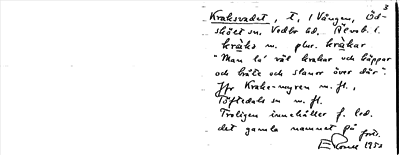 3
Kraksvadet, t, i Vången, Öd-
skölt sn, Vedbo hd. Älvsb. l.
kräks m. plur. kräkar
"Man la' väl krakar och käppar
och bråte och slanor över där".
Jfr Krake-myren m. fl.,
Töftedals sn m. fl.
Troligen innehåller f. led.
det gamla namnet på
1953